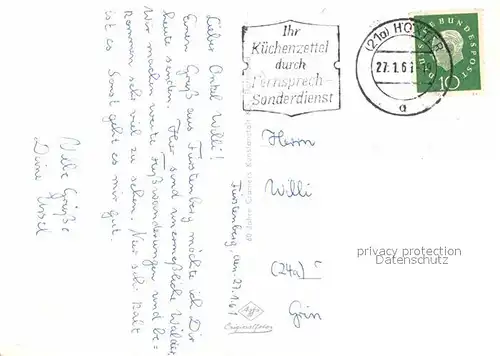 Lieber Onkel Willi!
Einen Gruß aus Fürstenberg möchte ich Dir
heute senden. Hier sind unermeßliche Wälder.
Wir machen weite Fußwanderungen und be=
kommen sehr viel zu sehen. Nur sehr kalt
ist es. Sonst geht es mir gut.
Viele Grüße
Deine Ursel
Fürstenberg, den 27.1.61
Ihr
Küchenzettel
durch
Fernsprech-
Sonderdienst
(21a) HÖXTER
27.1.61
a
DEUTSCHE BUNDESPOST
10
Herrn
Willi
(24a)
privacy protection
Datenschutz
Agfa
Originalfoto